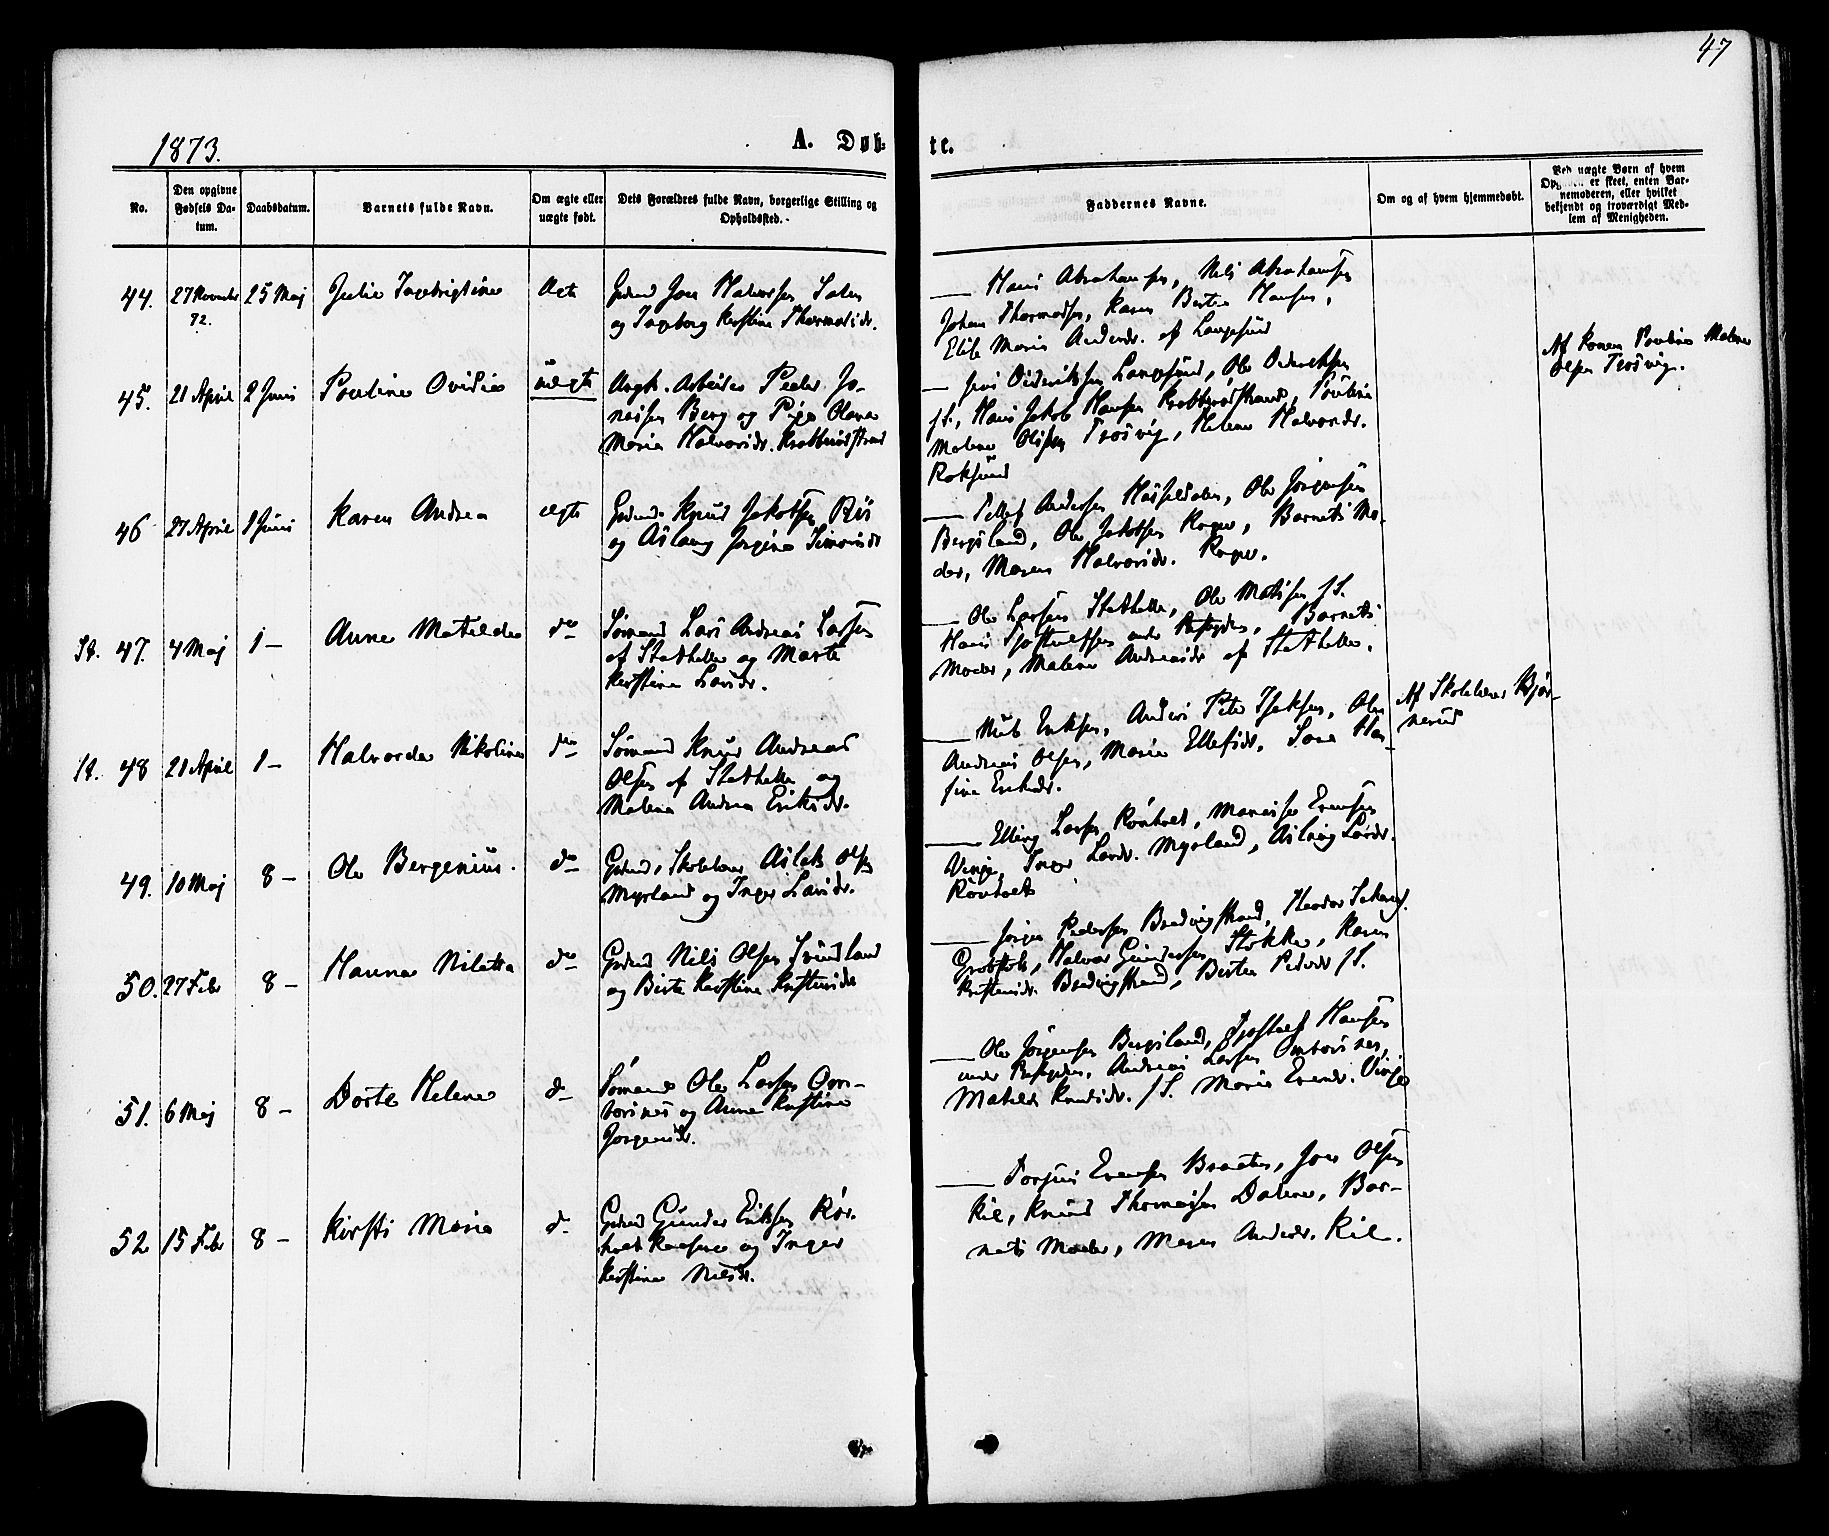 47
1873.
A. Døb-
te.
No.
Den opgivne Fødsels Datum.
Daabsdatum.
Barnets fulde Navn.
Om ægte eller uægte født.
Dets Forældres fulde Navn, borgerlige Stilling og Opholdssted.
Faddernes Navne.
Om og af hvem hjemmedøbt.
Ved uægte Børn af hvem
er skeet, enten Bar-
nemoderen, eller hvilket
bekjendt og troværdigt Med-
lem af Menigheden.
44. 27 November 72. 25 Maj Julie Ingebrigtine Ægte
Halvorsen
og Ingeborg Kirstine Thormodsdr.
Hans Abrahamsen, Nils Abrahamsen
Johan Thormodsen, Karen Hansen,
Elise Marie Andersdr. af Langesund
45. 21 April 2 Juni Poulina Ovidia uægte
Ungk. Arbeider Peder Jo-
nassen Berg og Pige Olava
Maria Halvorsdr. Krabberødstrand
Jens Dideriksen Langesund, Ole Dideriksen
sst., Hans Jakob Hansen Krabberødstrand, Poulina
Malene Olsen Trosvig, Helene Halvorsdr.
Roksund
Af Konen Poulina Malene
Olsen Trosvig.
46 27 April 1 Juni Karen Andrea ægte
Knud Jakobsen
og Aslaug Jørgine Simonsdr
Tellef Andersen Ole Jørgensen
Bergsland, Ole Jakobsen Barnets Mo-
der, Maren Halvorsdr.
47. 4 Maj 1 – Anne Matilde do
Sømand Lars Andreas Larsen
af Stathelle og Marte
Kirstine Larsdr.
Ole Larsen Stathelle, Ole Matisen sst.
Hans Barnets
Moder, Malene Andreasdr af Stathelle.
48 21 April 1 – Halvorda Nikolina do
Sømand Knud Andreas
Olsen af Stathelle og
Malena Andrea Eriksdr.
Eriksen, Anders Peter Isaksen, Ole
Andreas Olsen, Maria Ellefsdr. Han-
sine Eriksdr.
Af Skolelærer Bjør-
nerud
49. 10 Maj 8 – Ole Bergenius. do
Skolelærer Aslak Olsen
Myrland og Inger Larsdr.
Elling Larsen Rønholt, Evensen
Vinje, Inger Larsdr. Myrland, Aslaug Larsdr.
Rønholt
50. 27 Febr 8 – Hanna Niletta do
Nils Olsen Svindland
og Berte Kirstine Kristensdr
Jørgen Pedersen Bredvigstrand,
Halvor Gundersen Stokke, Karen
Kristensdr. Bredvigstrand, Berte Pedersdr sst.
51. 6 Maj 8 – Dorte Helene do
Sømand Ole Larsen Om-
borsnes og Anne Kirstine
Jørgensdr.
Ole Jørgensen Bergsland, Tjostolf Hansen
Andreas Larsen Omborsnes,
Matilde Knudsdr. sst. Maria Evensdr. Vinje
52 15 Febr 8 – Kirsti Maria do
Gunder Eriksen Rør-
holt og Inger
Kirstine Nilsdr.
Torjus Evensen Braaten, Jon Olsen
Kil, Knud Thomassen Dalene, Bar-
nets Moder, Maren Andersdr. Kil.